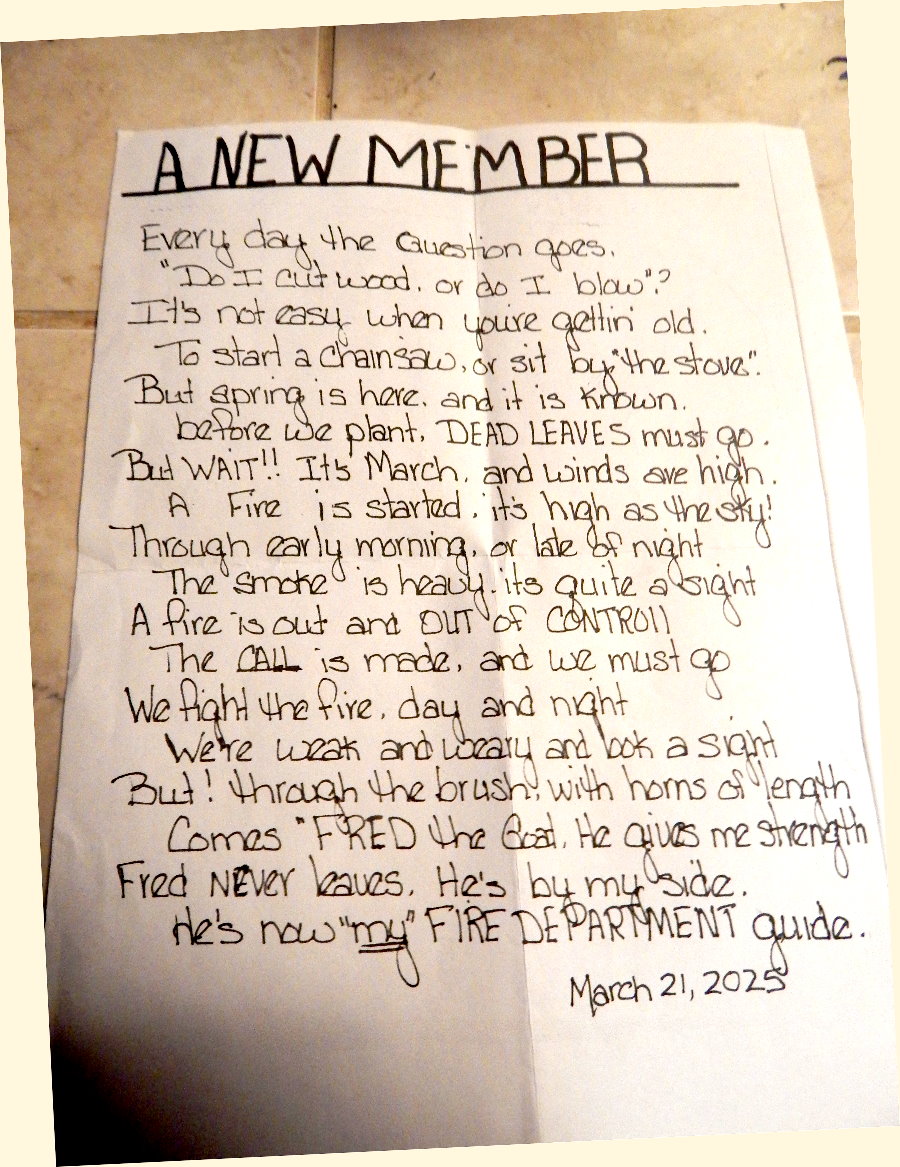 A NEW MEMBER
Every day the question goes.
"Do I cut wood, or do I blow"?
It's not easy when you're gettin' old.
To start a chainsaw, or sit by "the stove".
But spring is here, and it is known.
before we plant, DEAD LEAVES must go.
But WAIT!! It's March, and winds are high.
A Fire is started, it's high as the sky!
Through early morning, or late of night
The "smoke" is heavy. its quite a sight
A fire is out and OUT of CONTROll
The CALL is made, and we must go
We fight the fire, day and night
We're weak and weary and look a sight
But! through the brush, with horns of length
Comes "FRED the Goat. He gives me strength
Fred NEver leaves. He's by my side.
He's now "my" FIRE DEPARTMENT guide.
March 21, 2025